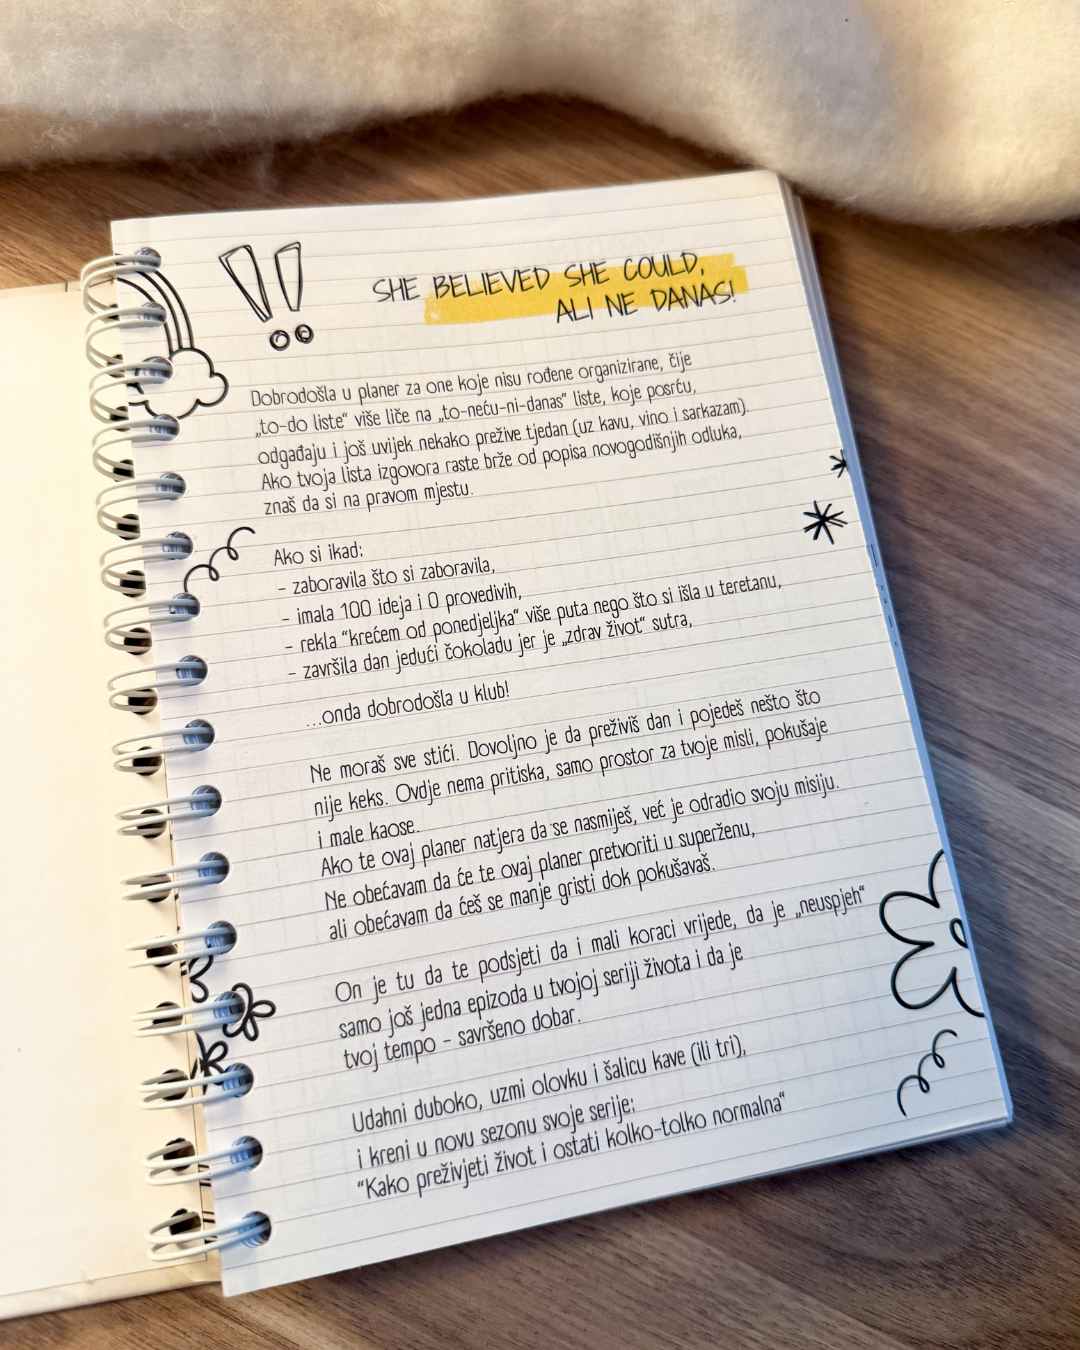 SHE BELIEVED SHE COULD,
ALI NE DANAS!
Dobrodošla u planer za one koje nisu rođene organizirane, čije
„to-do liste“ više liče na „to-neću-ni-danas“ liste, koje posrću,
odgađaju i još uvijek nekako prežive tjedan (uz kavu, vino i sarkazam).
Ako tvoja lista izgovora raste brže od popisa novogodišnjih odluka,
znaš da si na pravom mjestu.
Ako si ikad:
- zaboravila što si zaboravila,
- imala 100 ideja i 0 provedivih,
- rekla “krećem od ponedjeljka“ više puta nego što si išla u teretanu,
- završila dan jedući čokoladu jer je „zdrav život“ sutra,
...onda dobrodošla u klub!
Ne moraš sve stići. Dovoljno je da preživiš dan i pojedeš nešto što
nije keks. Ovdje nema pritiska, samo prostor za tvoje misli, pokušaje
i male kaose.
Ako te ovaj planer natjera da se nasmiješ, već je odradio svoju misiju.
Ne obećavam da će te ovaj planer pretvoriti u superženu,
ali obećavam da ćeš se manje gristi dok pokušavaš.
On je tu da te podsjeti da i mali koraci vrijede, da je „neuspjeh“
samo još jedna epizoda u tvojoj seriji života i da je
tvoj tempo - savršeno dobar.
Udahni duboko, uzmi olovku i šalicu kave (ili tri),
i kreni u novu sezonu svoje serije:
“Kako preživjeti život i ostati kolko-tolko normalna“